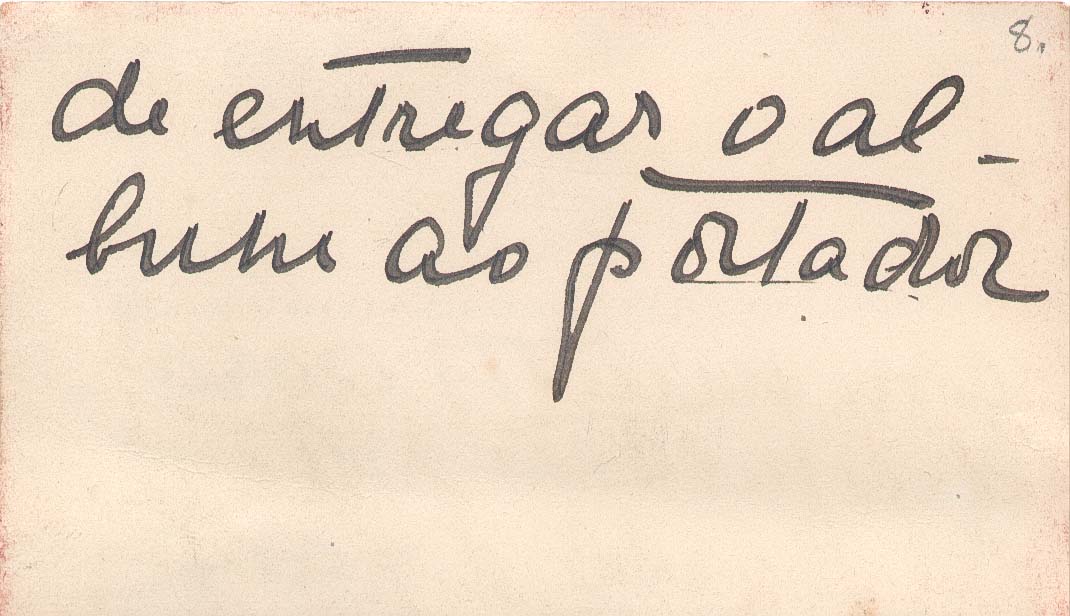 8.
de entregar o al-
bum ao portador